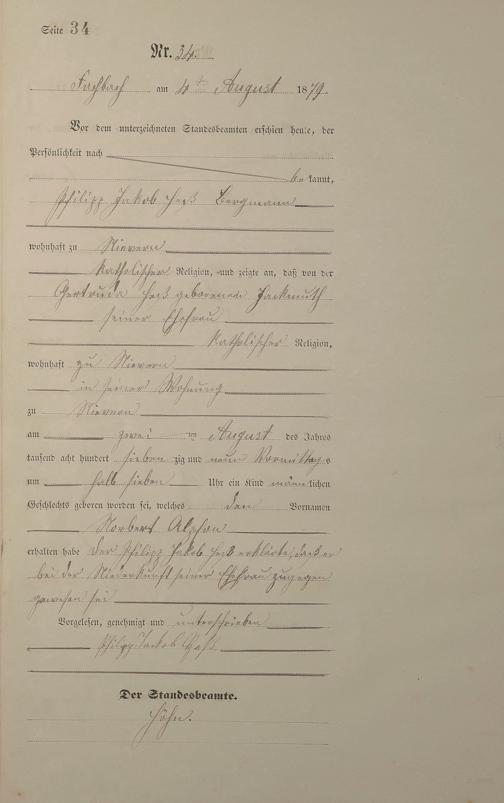 Seite 34
Nr. 34.
Fachbach am 4ten August 1879.
Vor dem unterzeichneten Standesbeamten erschien heute, der
Persönlichkeit nach
be kannt,
Philipp Jakob Heß Bergmann
wohnhaft zu Nievern
katholischer Religion, und zeigte an, daß von der
Gertruda Heß geborenen Jackmuth
seiner Ehefrau
katholischer Religion,
wohnhaft zu Nievern
in seiner Wohnung
zu Nievern
am zwei ten August des Jahres
tausend acht hundert sieben zig und neun Vormittags
um halb sieben Uhr ein Kind männlichen
Geschlechts geboren worden sei, welches den Vornamen
Norbert
erhalten habe Der Philipp Jakob Heß erklärte, daß er
bei der Niederkunft seiner Ehefrau zugegen
gewesen sei
Vorgelesen, genehmigt und unterschrieben
Philipp Jakob Heß
Der Standesbeamte.
Höhn.